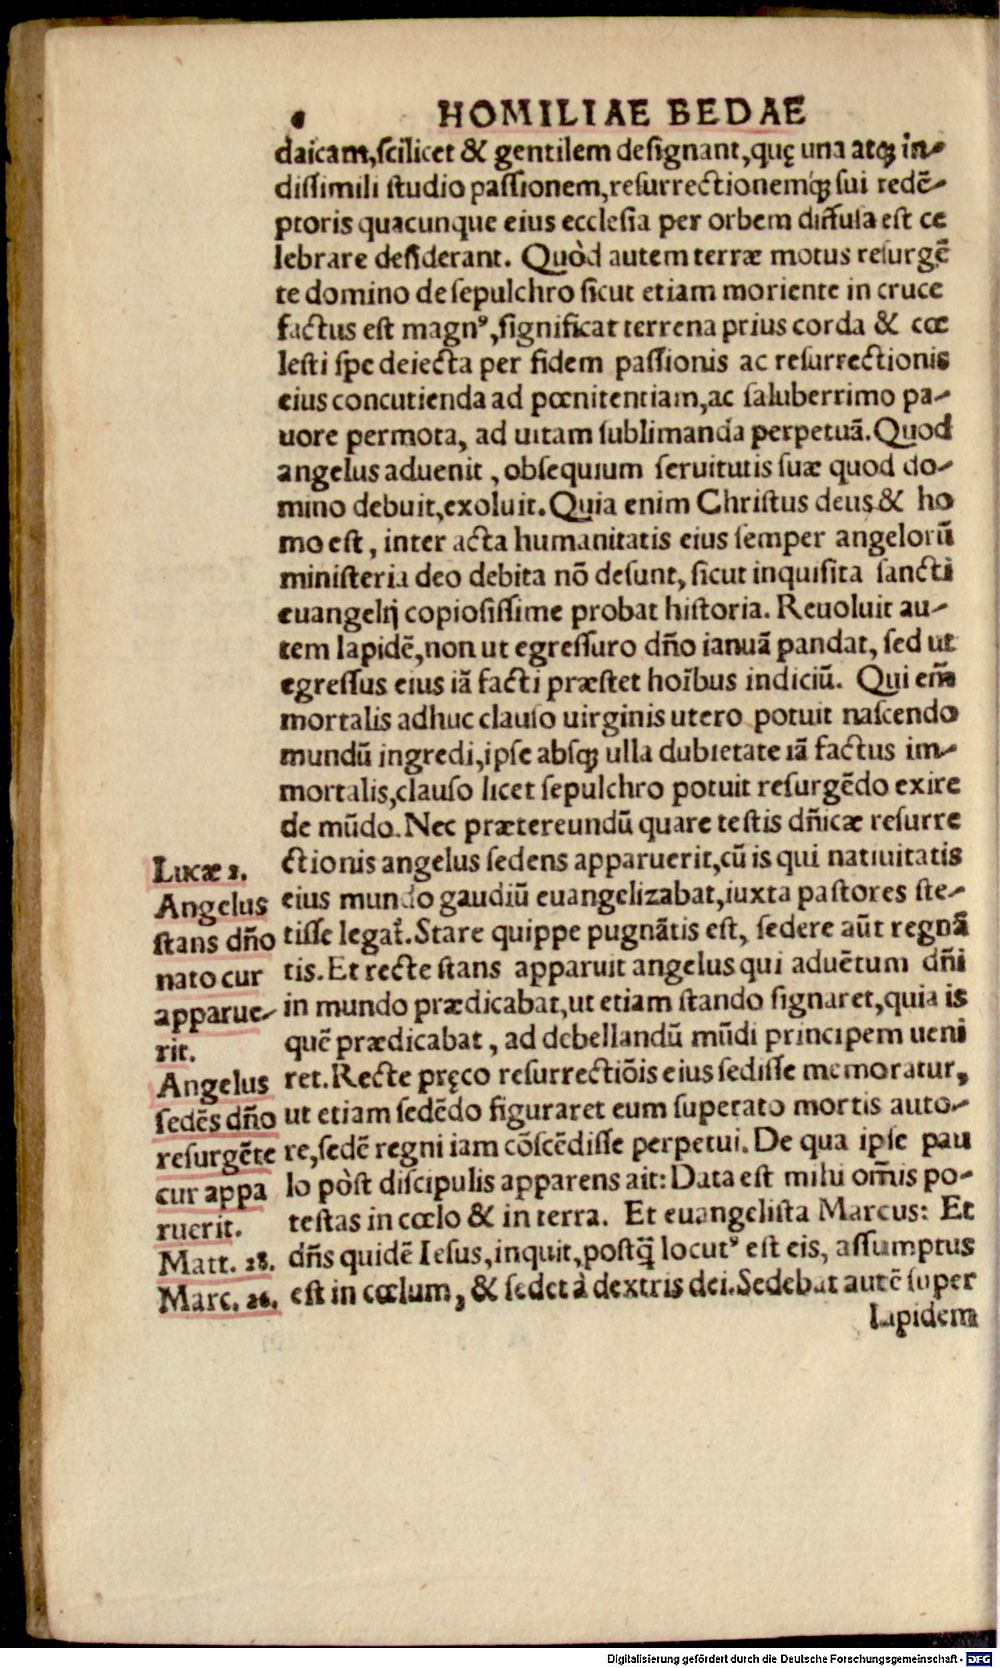 HOMILIAE BEDAE
daicam,ſcilicet & gentilem deſignant,quę una atq; in-
diſſimili ſtudio paſſionem,reſurrectionemq; ſui redē-
ptoris quacunque eius eccleſia per orbem diffuſa eſt ce
lebrare deſiderant. Quòd autem terræ motus reſurgē
te domino de ſepulchro ſicut etiam moriente in cruce
factus eſt magnꝰ,ſignificat terrena prius corda & cœ
leſti ſpe deiecta per fidem paſſionis ac reſurrectionis
eius concutienda ad pœnitentiam,ac ſaluberrimo pa-
uore permota, ad uitam ſublimanda perpetuā.Quod
angelus aduenit, obſequium ſeruitutis ſuæ quod do-
mino debuit,exoluit.Quia enim Chriſtus deus & ho
mo eſt, inter acta humanitatis eius ſemper angelorū
miniſteria deo debita nō deſunt, ſicut inquiſita ſancti
euangelij copioſiſſime probat hiſtoria. Reuoluit au-
tem lapidē,non ut egreſſuro dño ianuā pandat, ſed ut
egreſſus eius iā facti præſtet hoībus indiciū. Qui em̄
mortalis adhuc clauſo uirginis utero potuit naſcendo
mundū ingredi,ipſe abſq; ulla dubietate iā factus im-
mortalis,clauſo licet ſepulchro potuit reſurgēdo exire
de mūdo.Nec prætereundū quare teſtis dñicæ reſurre
ctionis angelus ſedens apparuerit,cū is qui natiuitatis
eius mundo gaudiū euangelizabat,iuxta paſtores ſte-
tiſſe legat̄.Stare quippe pugnātis eſt, ſedere aūt regnā
tis.Et recte ſtans apparuit angelus qui aduētum dñi
in mundo prædicabat,ut etiam ſtando ſignaret,quia is
quē prædicabat, ad debellandū mūdi principem ueni
ret.Recte pręco reſurrectiōis eius ſediſſe memoratur,
ut etiam ſedēdo figuraret eum ſuperato mortis auto-
re,ſedē regni iam cōſcēdiſſe perpetui.De qua ipſe pau
lo pòſt diſcipulis apparens ait:Data eſt mihi om̄is po-
teſtas in cœlo & in terra. Et euangeliſta Marcus: Et
dñs quidē Ieſus,inquit,poſtq̄ locutꝰ eſt eis, aſſumptus
eſt in cœlum, & ſedet à dextris dei.Sedebat autē ſuper
Lapidem
Lucæ 2.
Angelus
ſtans dño
nato cur
apparue-
rit.
Angelus
ſedēs dño
reſurgēte
cur appa
ruerit.
Matt. 28.
Marc. 26.
Digitalisierung gefördert durch die Deutsche Forschungsgemeinschaft - DFG